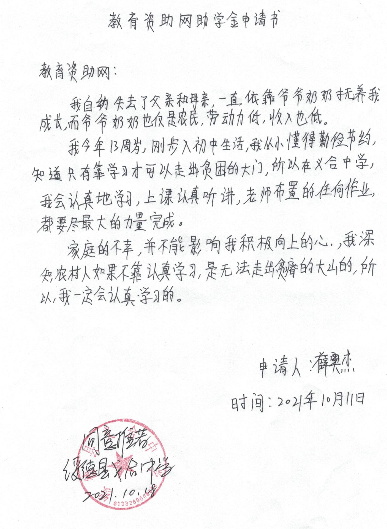 教育资助网助学金申请书
教育资助网：
我自幼失去了父亲和母亲，一直依靠爷爷奶奶才抚养我
成长，而爷爷奶奶也仅是农民，劳动力低，收入也低。
我今年13周岁，刚步入初中生活，我从小懂得勤俭节约，
知道只有靠学习才可以走出贫困的大门，所以在义合中学，
我会认真地学习，上课认真听讲，老师布置的任何作业，
都要尽最大的力量完成。
家庭的不幸，并不能影响我积极向上的心，我深
知，农村人如果不靠认真学习，是无法走出贫瘠的大山的，所
以，我一定会认真学习的。
申请人：薛奥杰
时间：2021年10月11日
同意推荐
绥德县义合中学
2021.10.18